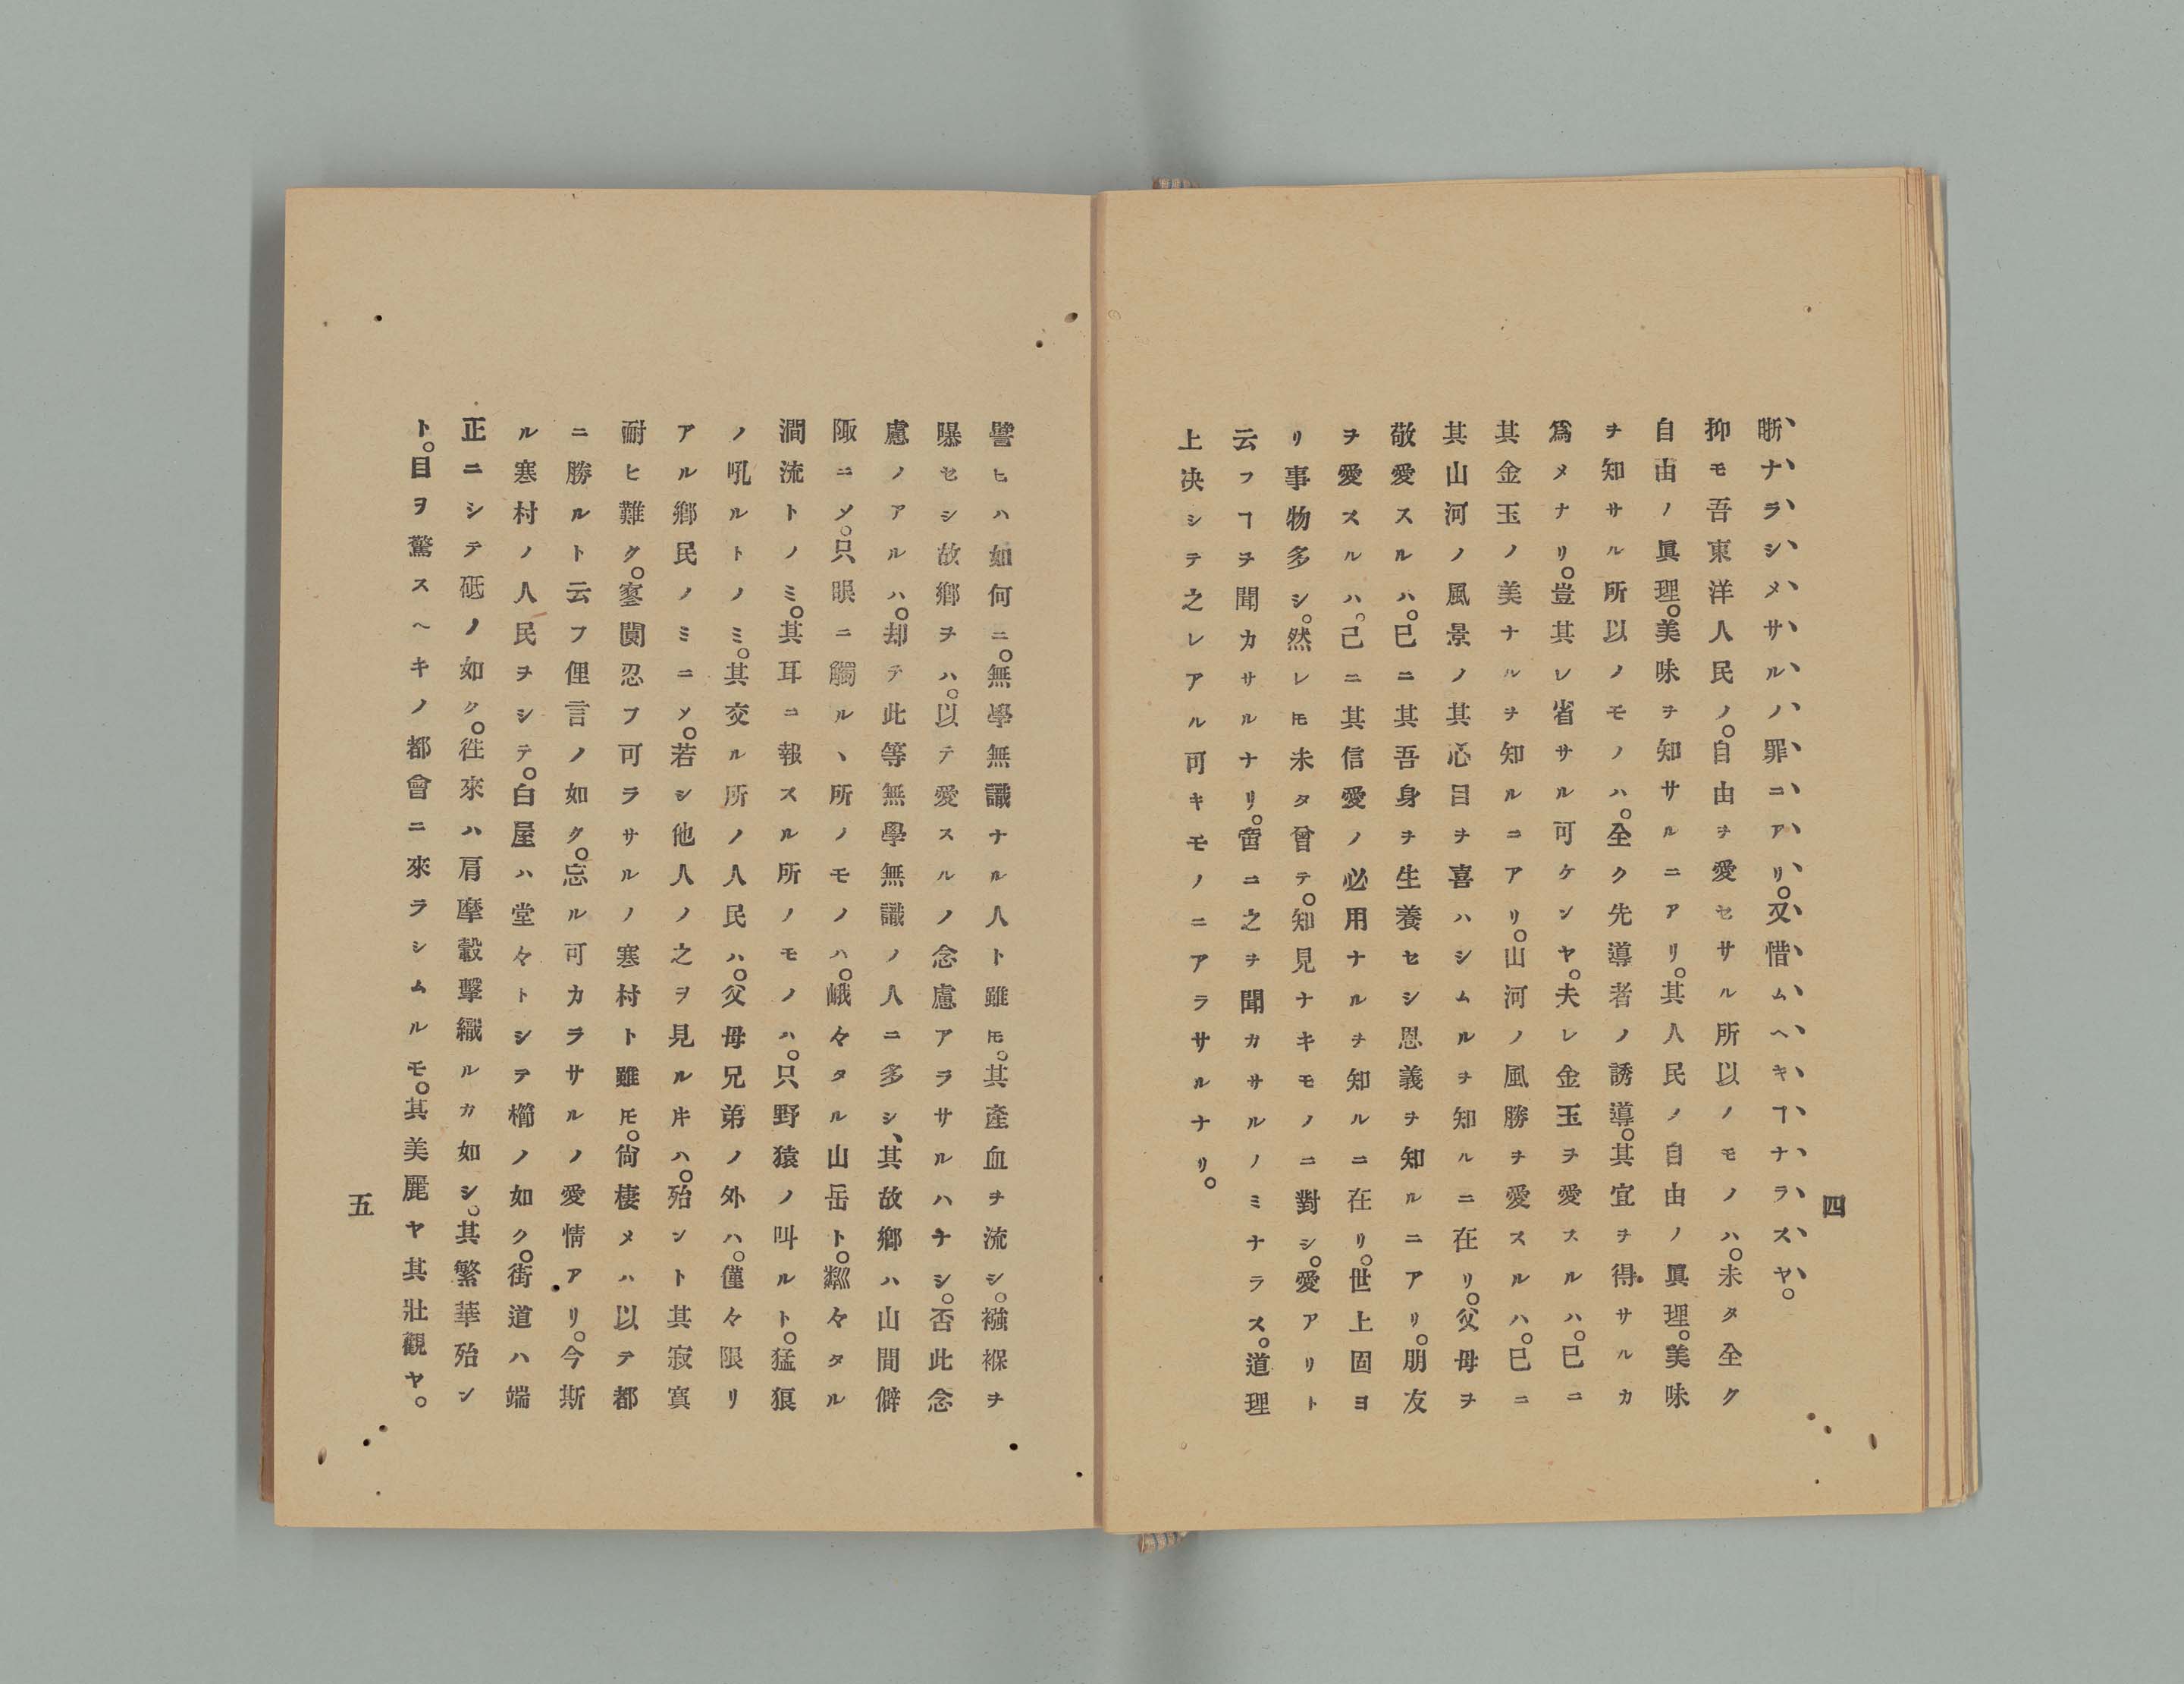 晣ナラシメサルノ罪ニアリ。又惜ムヘキヿナラスヤ。
抑モ吾東洋人民ノ。自由ヲ愛セサル所以ノモノハ。未タ全ク
自由ノ眞理。美味ヲ知サルニアリ。其人民ノ自由ノ眞理。美味
ヲ知サル所以ノモノハ。全ク先導者ノ誘導。其宜ヲ得サルカ
爲メナリ。豈其レ省サル可ケンヤ。夫レ金玉ヲ愛スルハ。已ニ
其金玉ノ美ナルヲ知ルニアリ。山河ノ風勝ヲ愛スルハ。已ニ
其山河ノ風景ノ其心目ヲ喜ハシムルヲ知ルニ在リ。父母ヲ
敬愛スルハ。已ニ其吾身ヲ生養セシ恩義ヲ知ルニアリ。朋友
ヲ愛スルハ。己ニ其信愛ノ必用ナルヲ知ルニ在リ。世上固ヨ
リ事物多シ。然レ𪜈未タ曾テ。知見ナキモノニ對シ。愛アリト
云フヿヲ聞カサルナリ。啻ニ之ヲ聞カサルノミナラス。道理
上决シテ之レアル可キモノニアラサルナリ。
四
譬ヒハ如何ニ。無學無識ナル人ト雖𪜈。其產血ヲ流シ。襁褓ヲ
曝セシ故鄕ヲハ。以テ愛スルノ念慮アラサルハナシ。否此念
慮ノアルハ。却テ此等無學無識ノ人ニ多シ、其故鄕ハ山間僻
陬ニ〆。只眼ニ觸ルヽ所ノモノハ。峨々タル山岳ト。粼々タル
澗流トノミ。其耳ニ報スル所ノモノハ。只野猿ノ叫ルト。猛狼
ノ吼ルトノミ。其交ル所ノ人民ハ。父母兄弟ノ外ハ。僅々限リ
アル鄕民ノミニ〆。若シ他人ノ之ヲ見ル𬼀ハ。殆ント其寂寞
耐ヒ難ク。寥闃忍フ可ラサルノ寒村ト雖𪜈。尙棲メハ以テ都
ニ勝ルト云フ俚言ノ如ク。忘ル可カラサルノ愛情アリ。今斯
ル寒村ノ人民ヲシテ。白屋ハ堂々トシテ櫛ノ如ク。街道ハ端
正ニシテ砥ノ如ク。徃來ハ肩摩轂擊織ルカ如シ。其繁華殆ン
ト。目ヲ驚スヘキノ都會ニ來ラシムルモ。其美麗ヤ其壯觀ヤ。
五